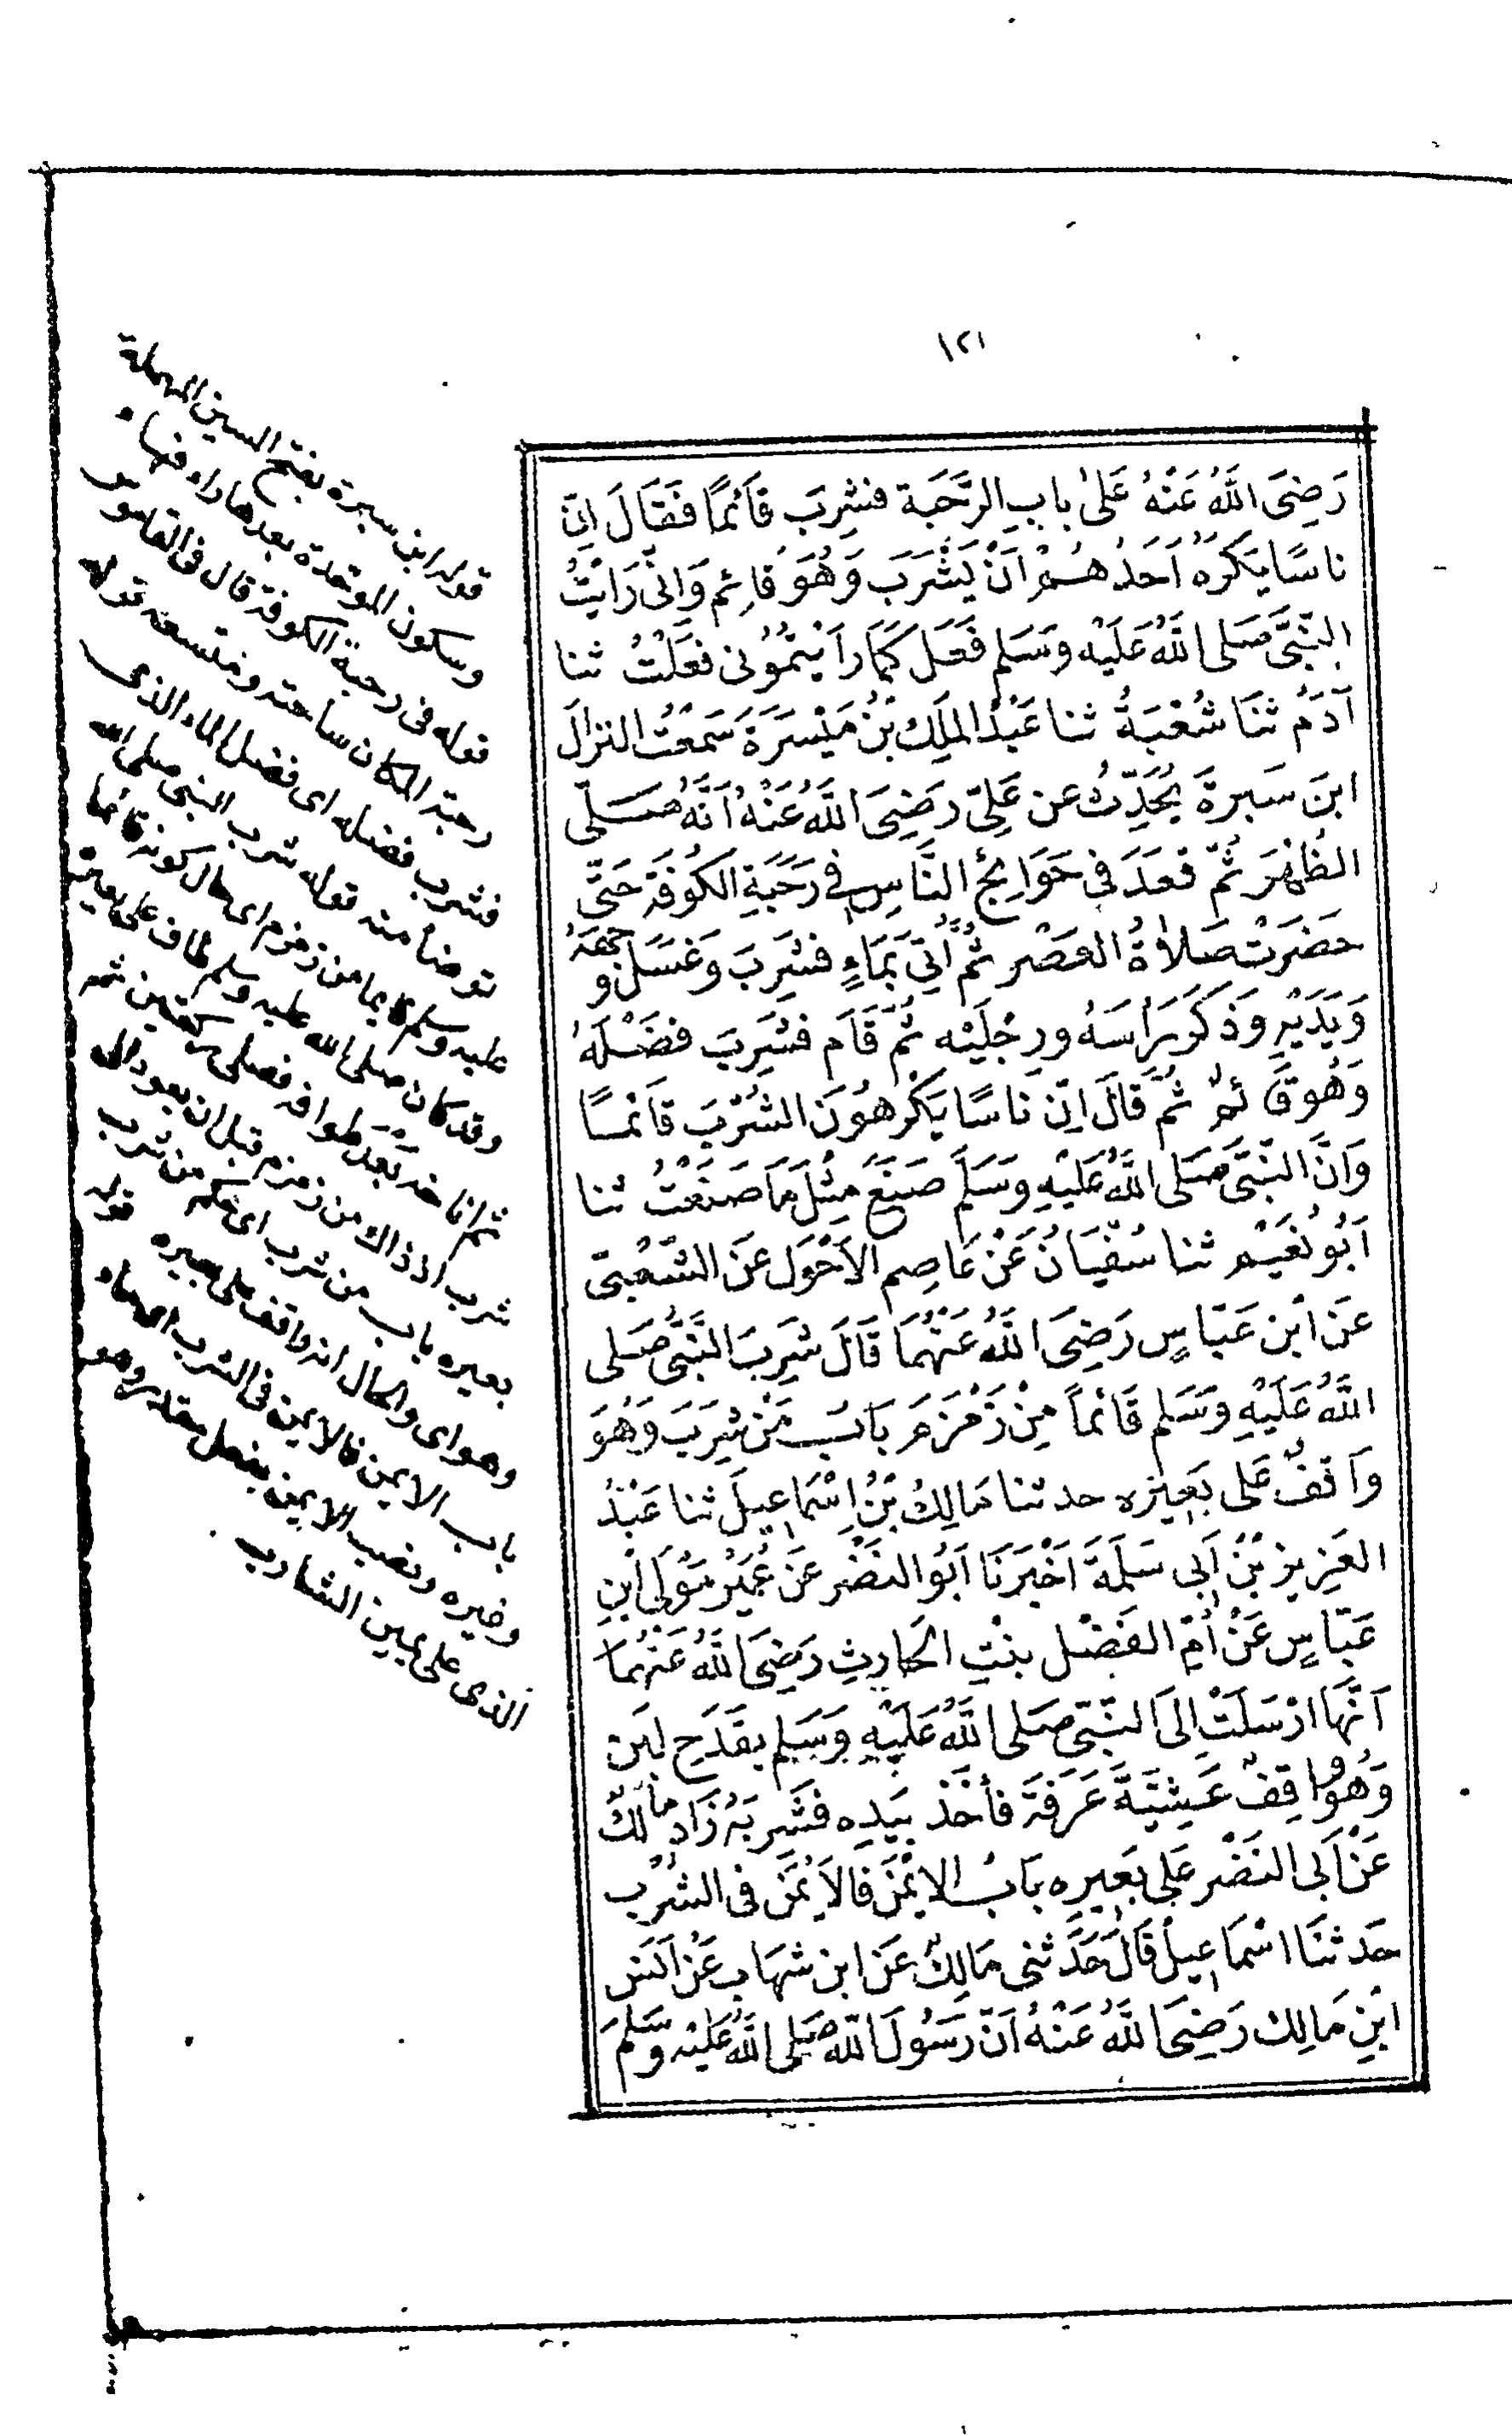 ١٢١
رَضِىَ اللَّهُ عَنْهُ عَلىٰ بابِ الرَّحَبَة فشرِبَ قآئمًا فَقَالَ اِنّ
ناسًا يَكرَهُ اَحَدُهُمْ اَنْ يَشْرَبَ وَهُوَ قائِم وَانّى رَاَيْتُ
النّبىَّ صَلى اللَّهُ عَلَيْه وَسَلم فَعَلَ كَمَا رَاَيْتمُوُنى فعَلْتُ ثنا
آدَمُ ثنَا شُعْبَةُ ثنا عَبْدُ الملِك بْنُ مَيْسَرَةَ سَمعْتُ النزالَ
ابنَ سَبرةَ يُحَدِّثُ عن عَلِىّ رَضِىَ اللَّهُ عَنْهُ اَنَّهُ صَلّى
الظُهْرَ ثُمّ قعَدَ فى حَوَائِج النَّاسِ فى رَحَبَةِ الكُوفَة حَتَّى
حَضَرَتْ صَلاةُ العَصْر ثُمَّ اُتِىَ بَمَاءٍ فشَرِبَ وَغسَلَ وجْهَهُ
وَيَدَيْهِ وَذَكَرَ رَاْسَهُ ورِجْلَيْه ثُمّ قَامَ فشَرِبَ فضْلَهُ
وَهُوَ قَائمٌ ثُمّ قالَ اِنّ ناسًا يَكْرهُونَ الشُرْبَ قآئمًا
وَانَّ النّبىَّ صَلى اللَّهُ عَلَيْهِ وَسَلمَ صَنَعَ مِثْلَ مَا صَنَعْتُ ثنا
اَبُو نُعَيْم ثنا سُفْيَانُ عَنْ عَاصِم الاَحْوَل عَنِ الشّعْبىّ
عَن ابْن عَبّاسٍ رَضِىَ اللَّهُ عَنْهُمَا قَالَ شرِبَ النَّبىُّ صَلى
اللَّهُ عَلَيْهِ وَسَلم قَائماً مِنْ زَمْزَمَ بَابُ مَنْ شرِبَ وَهُوَ
وَاقفٌ عَلى بَعِيرْهِ حدثنا مَالِكُ بْنُ اِسْمَاعِيلَ ثنا عَبْدُ
العَزِيز بْنُ اَبى سَلَمَةَ اَخْبَرَنَا اَبُو النَضْر عَنْ عُمَيْر مَوْلَى ابْنِ
عَبّاسٍ عَنْ اُمّ الفَضْل بنْتِ الحَارِثِ رَضِىَ اللَّهُ عَنْهُمَا
اَنَّهَا ارْسَلَتْ اِلَى النّبىّ صَلى اللَّهُ عَلَيْهِ وَسَلم بقَدَحِ لبَن
وَهُوَ وَاقِفٌ عَشِيَّةَ عَرَفَةَ فأخَذ بيَدِه فشَرِبَهُ زَادَ مَالكٌ
عَنْ اَبى النَضْر عَلى بَعِيرِه بَابُ الايْمَنَ فالاَيْمَنَ فى الشُرْب
حَدثنَا اسْمَاعِيلُ قَالَ حَدَّثنى مَالِكٌ عَن ابن شهَابٍ عَنْ اَنَس
ابْنِ مَالِكٍ رَضِىَ اللَّهُ عَنْهُ اَنّ رَسُولَ اللَّهِ صَلى اللَّهُ عَلَيْه وَسَلمَ
قوله ابن سبرة بفتح السين المهملة
وسكون الموحدة بعدها راء فهاء
قوله فى رحبة الكوفة قال فى القاموس
رحبة المكان ساحته ومتسعه قوله
فشرب فضله اى فضل الماء الذى
توضأ منه قوله شرب النبى صلى الله
عليه وسلم قائما من زمزم اى حال كونه قائما
وقد كان صلى الله عليه وسلم طاف على بعيره
ثم اناخه بعد طوافه فصلى ركعتين ثم
شرب اذ ذاك من زمزم قبل ان يعود الى
بعيره باب من شرب اى حكم من شرب قوله
وهو اى والحال انه واقف على بعيره
باب الايمن فالايمن فى الشرب اى ماء
وغيره ونصب الايمن بفعل مقدر وهو
الذى على يمين الشارب